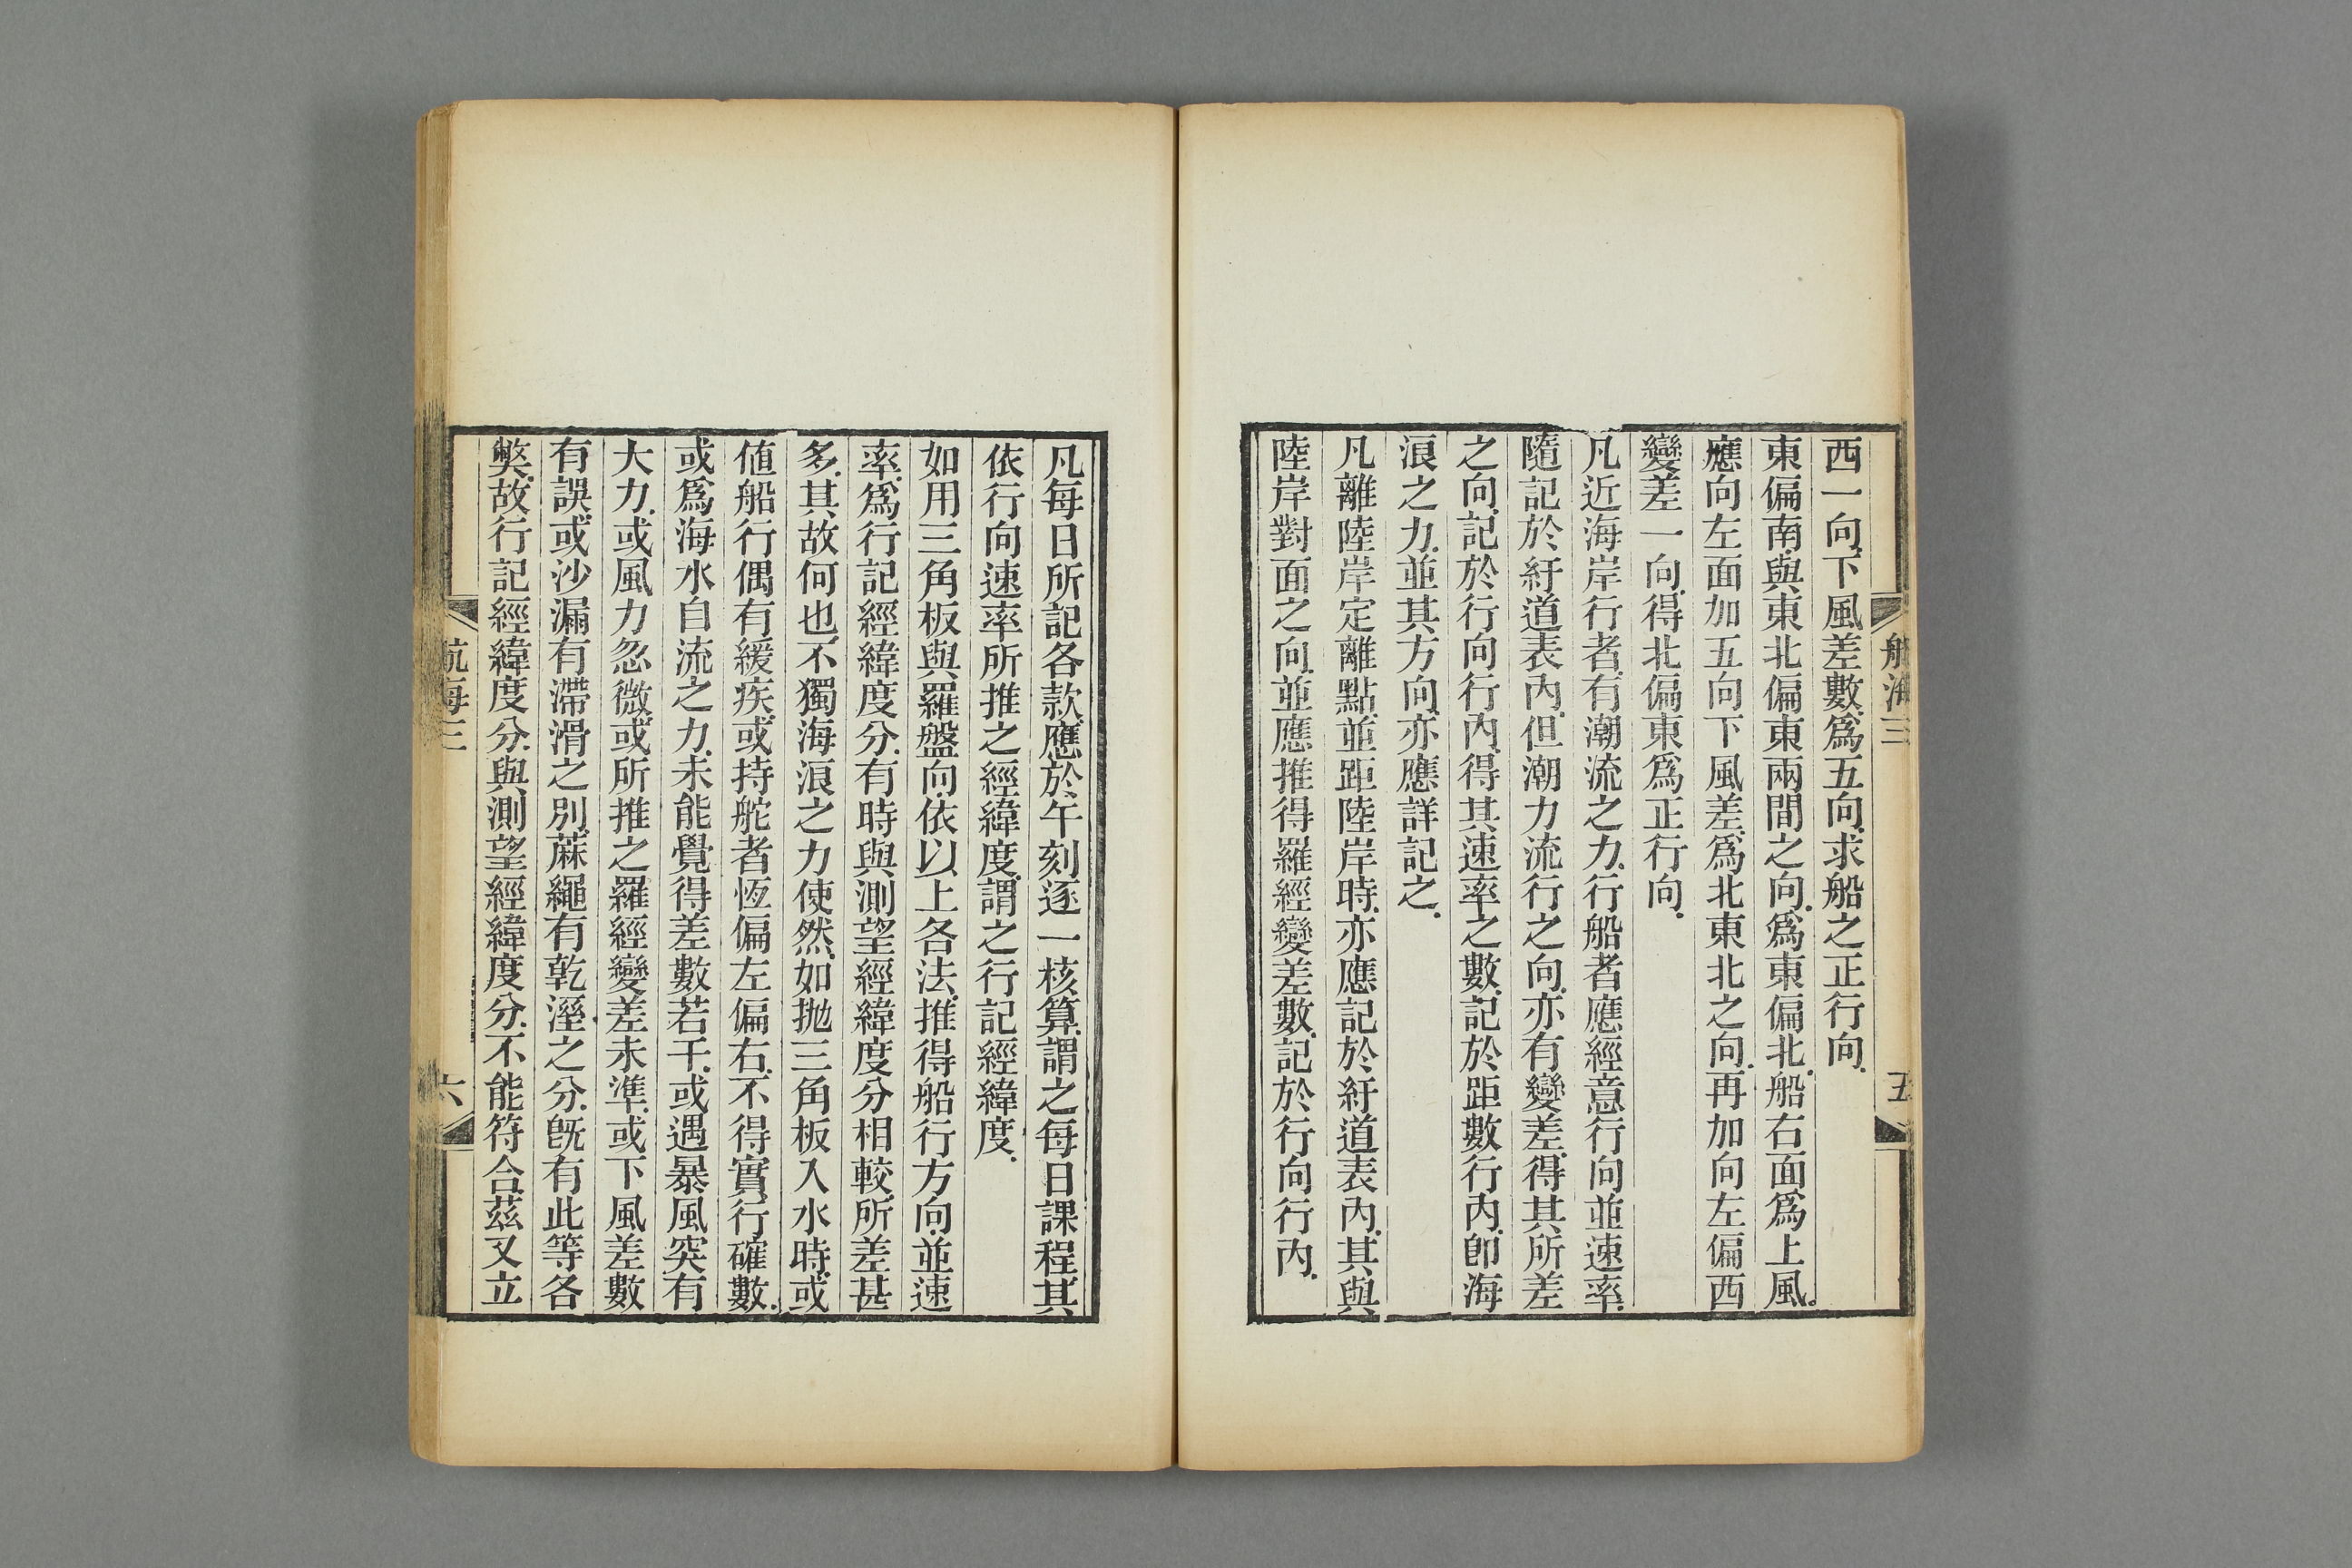 航海三
五
西一向、下風差數、爲五向、求船之正行向.
東偏南、與東北偏東兩間之向、爲東偏北、船右面爲上風、
應向左面加五向下風差、爲北東北之向、再加向左偏西
變差一向、得北偏東爲正行向.
凡近海岸行者、有潮流之力、行船者應經意行向並速率、
隨記於紆道表內、但潮力流行之向、亦有變差、得其所差
之向、記於行向行內、得其速率之數、記於距數行內、卽海
浪之力、並其方向、亦應詳記之.
凡離陸岸定離點、並距陸岸時、亦應記於紆道表內、其與
陸岸對面之向、並應推得羅經變差數、記於行向行內.
凡每日所記各款、應於午刻逐一核算、謂之每日課程、其
依行向速率所推之經緯度、謂之行記經緯度.
如用三角板與羅盤向、依以上各法、推得船行方向、並速
率、爲行記經緯度分、有時與測望經緯度分相較、所差甚
多、其故何也、不獨海浪之力使然、如拋三角板入水時、或
値船行偶有緩疾、或持舵者恆偏左偏右、不得實行確數、
或爲海水自流之力、未能覺得差數若干、或遇暴風突有
大力、或風力忽微、或所推之羅經變差未準、或下風差數
有誤、或沙漏有滯滑之別、蔴繩有乾溼之分、旣有此等各
獘、故行記經緯度分、與測望經緯度分、不能符合、茲又立
航海三
六